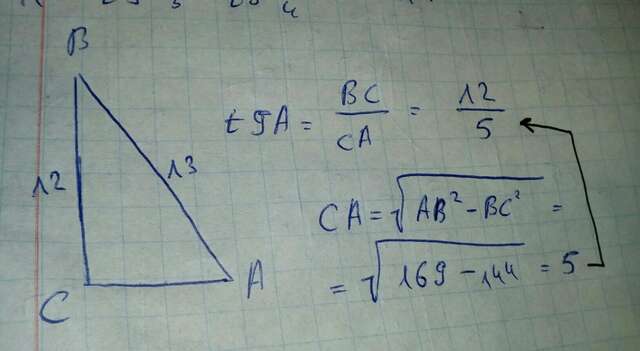 B
12
13
C
A
tgA = BC/CA = 12/5
CA = √(AB² - BC²) =
= √(169 - 144) = 5